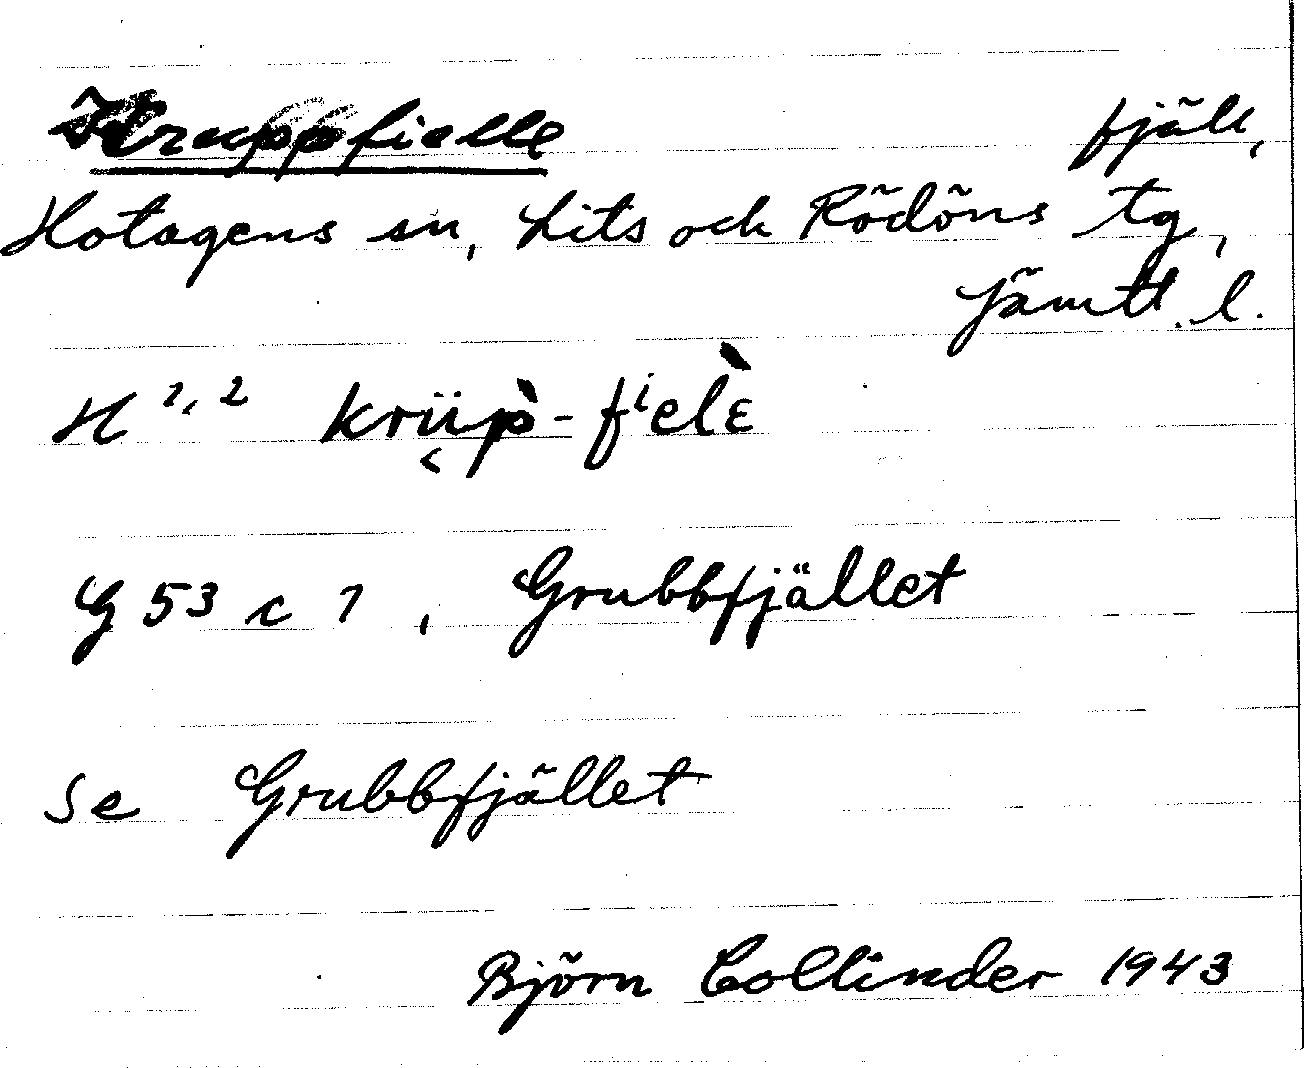 Kruppfielle fjäll,
Hotagens sn, Lits och Rödöns tg,
Jämtl. l.
H 1, 2 krüp̀-fⁱelὲ
G 53 c 1, Grubbfjället
Se Grubbfjället
Björn Collinder 1943